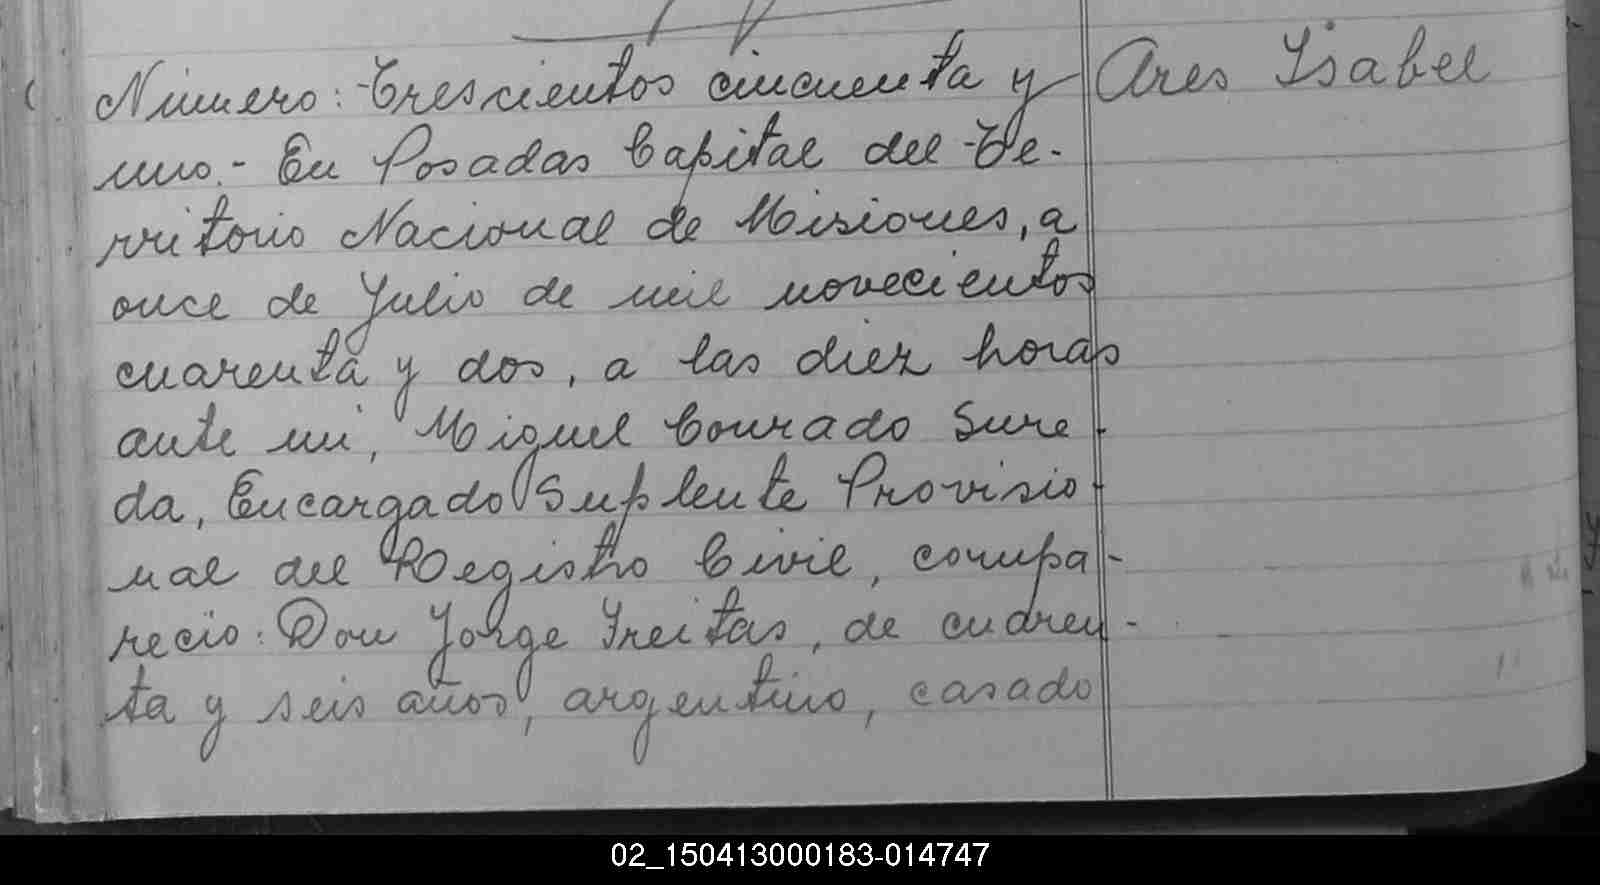 Número: Trescientos cincuenta y
uno.- En Posadas Capital del Te-
rritorio Nacional de Misiones, a
once de Julio de mil novecientos
cuarenta y dos, a las diez horas
ante mi, Miguel Conrado Sure-
da, Encargado Suplente Provisio-
nal del Registro Civil, compa-
reció: Don Jorge Freitas, de cuaren-
ta y seis años, argentino, casado
Ares Isabel
02_150413000183-014747